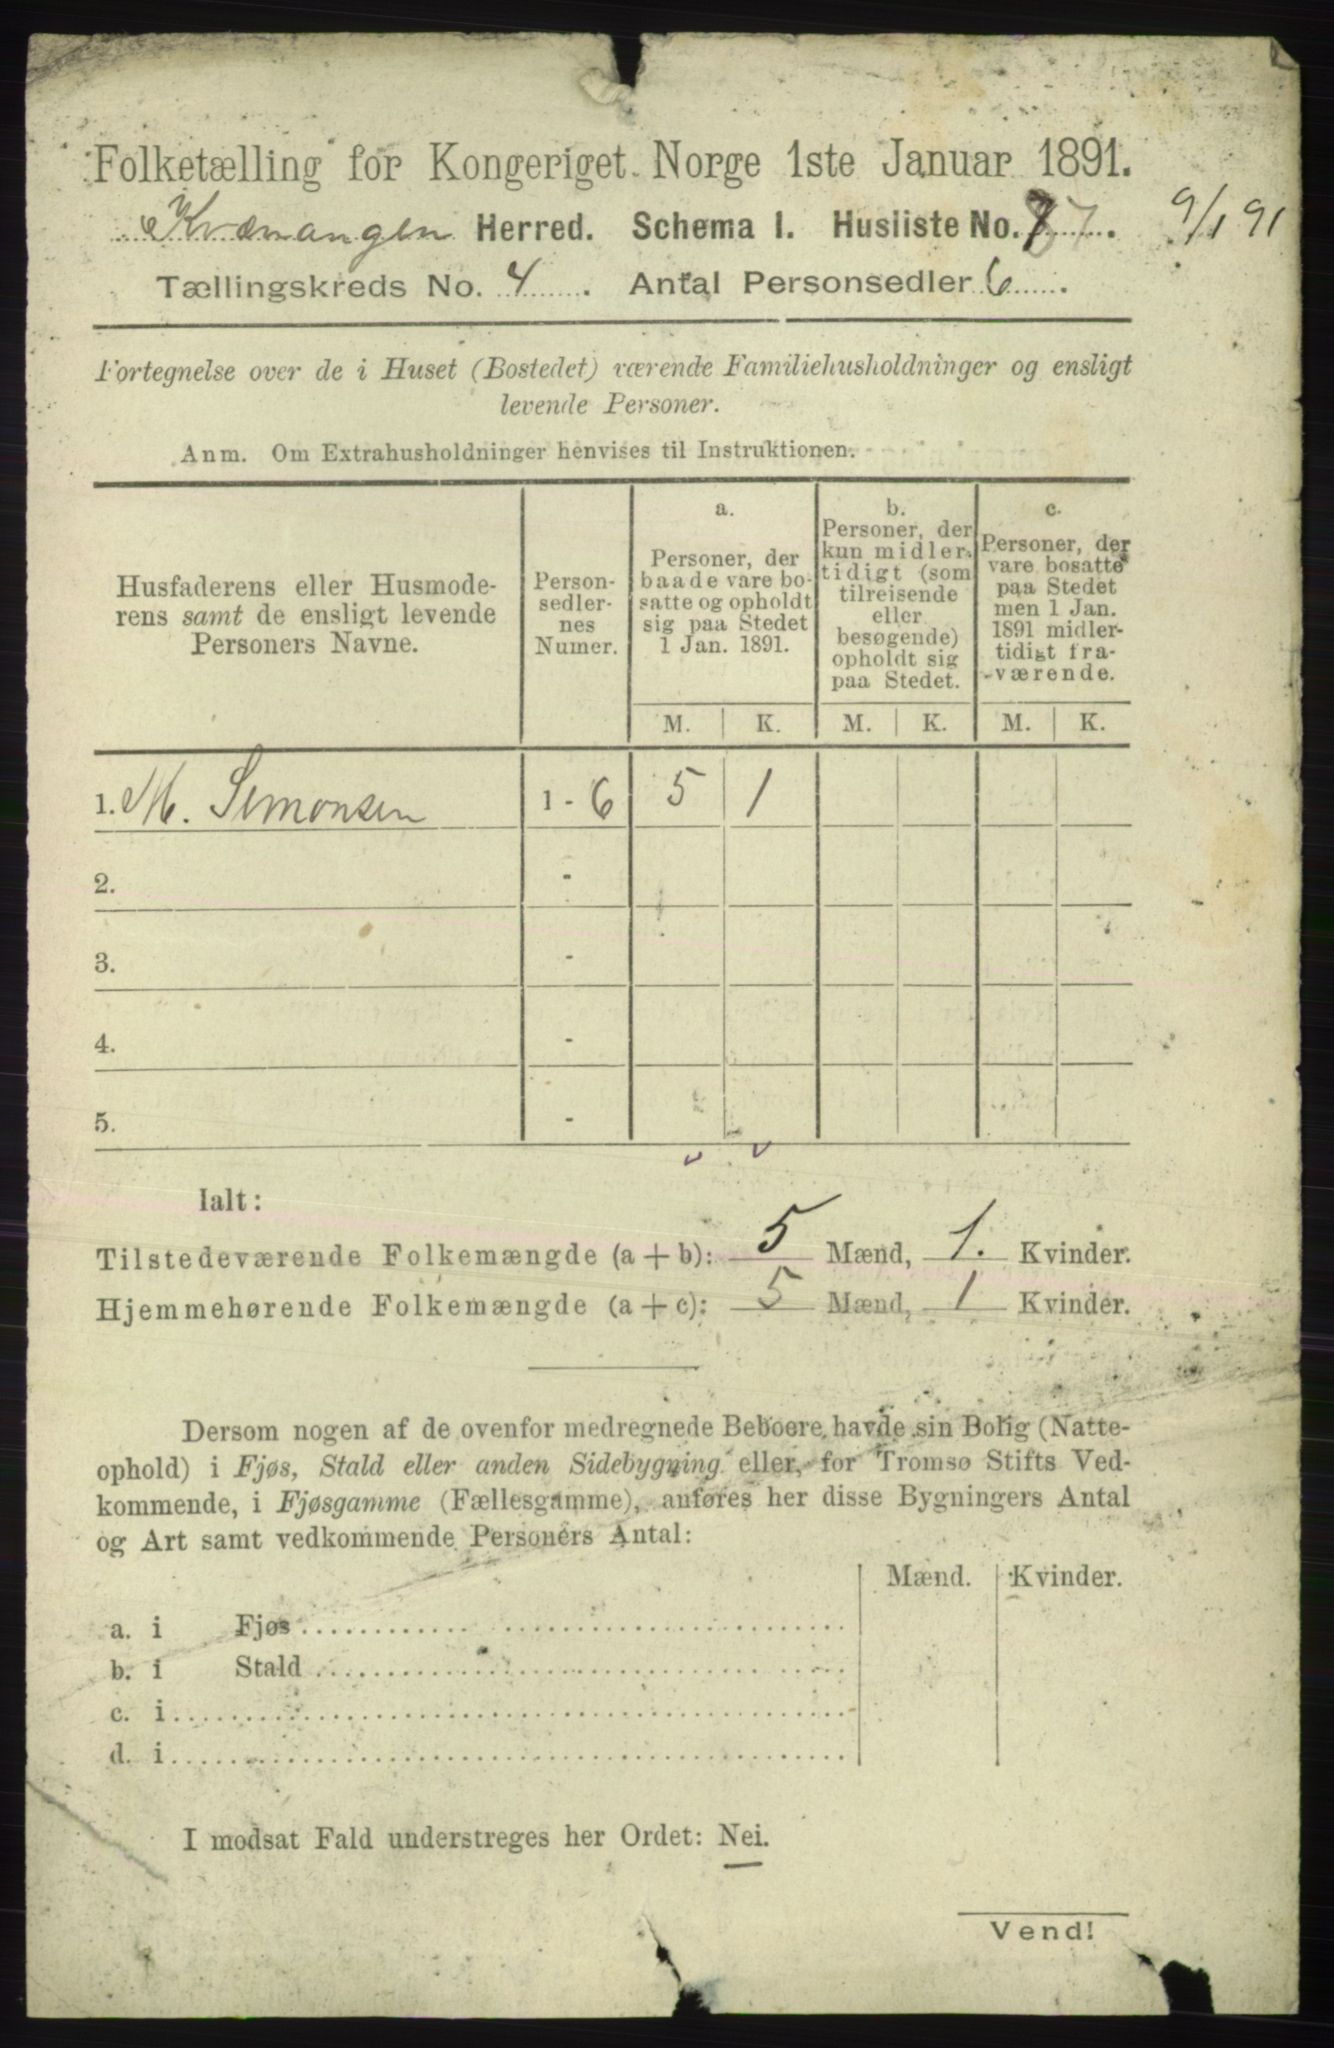 Folketælling for Kongeriget Norge 1ste Januar 1891.
Kvænangen Herred. Schema I. Husliste No. 87. 9/1 91
Tællingskreds No. 4. Antal Personsedler 6.
Fortegnelse over de i Huset (Bostedet) værende Familiehusholdninger og ensligt
levende Personer.
Anm. Om Extrahusholdninger henvises til Instruktionen.
Husfaderens eller Husmode-
rens samt de ensligt levende
Personers Navne.
Person-
sedler-
nes
Numer.
a.
Personer, der
baade vare bo-
satte og opholdt
sig paa Stedet
1 Jan. 1891.
b.
Personer, der
kun midler-
tidigt (som
tilreisende
eller
besøgende)
opholdt sig
paa Stedet.
c.
Personer, der
vare bosatte
paa Stedet
men 1 Jan.
1891 midler-
tidigt fra-
værende.
M. K. M. K. M. K.
1. M. Simonsen 1 - 6 5 1
2. -
3. -
4. -
5. -
Ialt:
Tilstedeværende Folkemængde (a + b): 5 Mænd, 1. Kvinder.
Hjemmehørende Folkemængde (a + c): 5 Mænd, 1 Kvinder.
Dersom nogen af de ovenfor medregnede Beboere havde sin Bolig (Natte-
ophold) i Fjøs, Stald eller anden Sidebygning eller, for Tromsø Stifts Ved-
kommende, i Fjøsgamme (Fællesgamme), anføres her disse Bygningers Antal
og Art samt vedkommende Personers Antal:
Mænd. Kvinder.
a. i Fjøs
b. i Stald
c. i
d. i
I modsat Fald understreges her Ordet: Nei.
Vend!